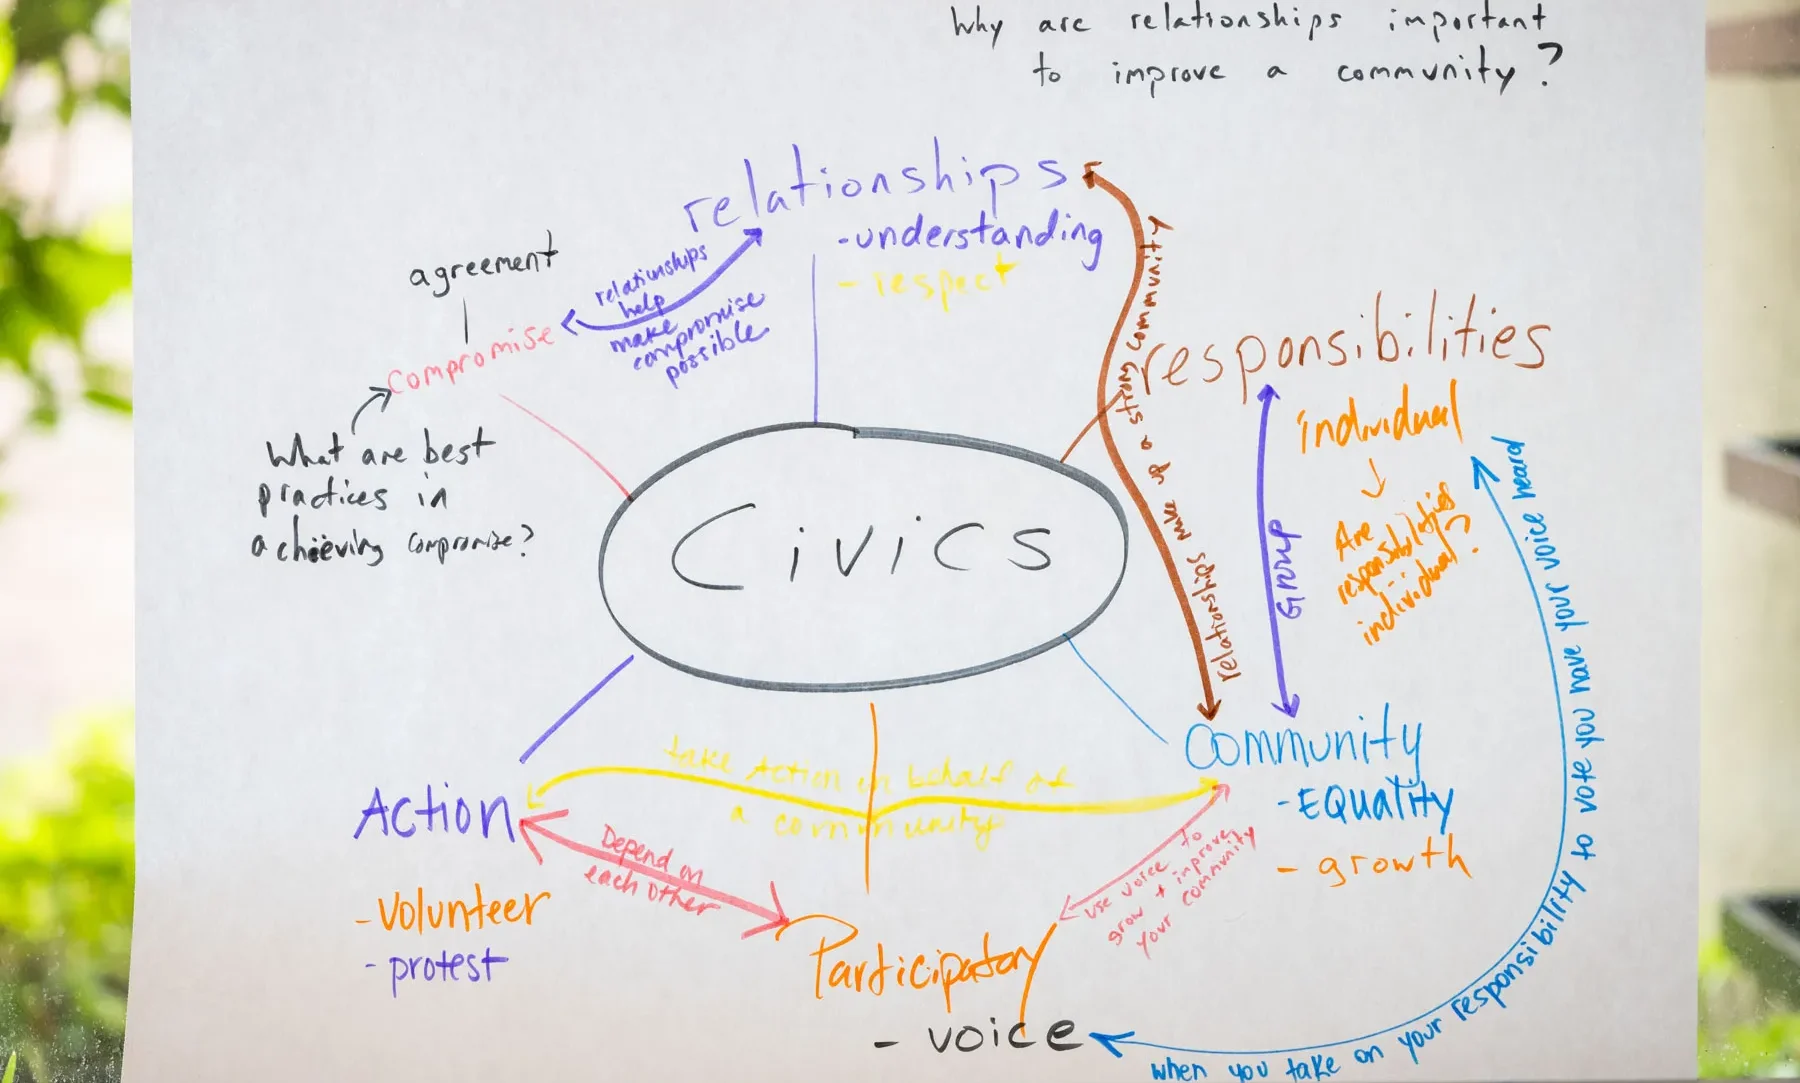 Why are relationships important
to improve a community?
relationships
-understanding
- respect
agreement
compromise
relationships
help
make
compromise
possible
What are best
practices in
achieving compromise?
relationships make up a strong community
responsibilities
individual
Are
responsibilities
individual?
Group
Civics
when you take on your responsibility to vote you have your voice heard
Community
- EQUALITY
- growth
take Action on behalf of
a community
Action
- Volunteer
- protest
Depend on
each other
use voice to
grow + improve
your community
Participatory
- voice